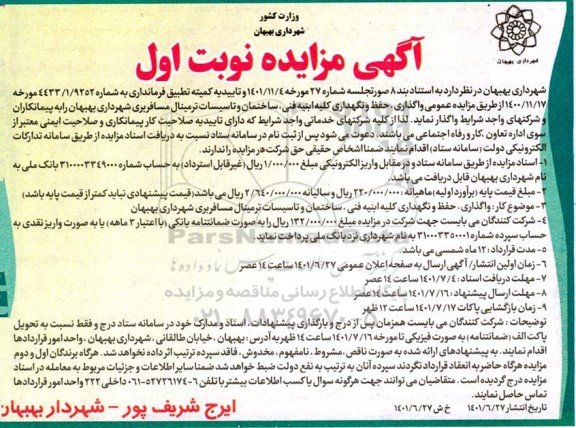 وزارت کشور
شهرداری بهبهان
شهرداری بهبهان
آگهی مزایده نوبت اول
شهرداری بهبهان در نظر دارد به استناد بند ۸ صورتجلسه شماره ۲۷ مورخه ۱۴۰۱/۱۱/۴ و تاییدیه کمیته تطبیق فرمانداری به شماره ۴۴۳۳/۱/۹۲۵۲ مورخه
۱۴۰۰/۱۱/۱۷ از طریق مزایده عمومی واگذاری، حفظ و نگهداری کلیه ابنیه فنی، ساختمان و تاسیسات ترمینال مسافربری شهرداری بهبهان را به پیمانکاران
و شرکتهای واجد شرایط واگذار نماید. لذا از کلیه شرکتهای خدماتی واجد شرایط که دارای تاییدیه صلاحیت کار پیمانکاری و صلاحیت ایمنی معتبر از
سوی اداره تعاون، کار و رفاه اجتماعی می باشند، دعوت می شود پس از ثبت نام در سامانه ستاد نسبت به دریافت اسناد مزایده از طریق سامانه تدارکات
الکترونیکی دولت (سامانه ستاد) اقدام نمایند ضمنا اشخاص حقیقی حق شرکت در مزایده را ندارند.
۱- اسناد مزایده از طریق سامانه ستاد و در مقابل واریز الکترونیکی مبلغ ۱/۰۰۰/۰۰۰ ریال (غیرقابل استرداد) به حساب شماره ۳۱۰۰۰۰۳۳۴۹۰۰۰ بانک ملی به
نام شهرداری بهبهان قابل دریافت می باشد.
۲- مبلغ قیمت پایه (برآورد اولیه) ماهیانه: ۲۲۰/۰۰۰/۰۰۰ ریال و سالیانه ۲/۶۴۰/۰۰۰/۰۰۰ ریال می باشد (قیمت پیشنهادی نباید کمتر از قیمت پایه باشد)
۳- موضوع کار: واگذاری، حفظ و نگهداری کلیه ابنیه فنی، ساختمان و تاسیسات ترمینال مسافربری شهرداری بهبهان
۴- شرکت کنندگان می بایست جهت شرکت در مزایده مبلغ ۱۳۲/۰۰۰/۰۰۰ ریال را به صورت ضمانتنامه بانکی (با اعتبار ۳ ماهه) یا به صورت واریز نقدی به
حساب سپرده شماره ۳۱۰۰۰۳۳۵۰۰۰۱ به نام شهرداری نزد بانک ملی پرداخت نماید.
۵- مدت قرارداد: ۱۲ ماه شمسی می باشد.
۶- زمان اولین انتشار / آگهی ارسال به صفحه اعلان عمومی ۱۴۰۱/۶/۲۷ ساعت ۱۴ عصر
۷- مهلت دریافت اسناد: ۱۴۰۱/۷/۴ ساعت ۱۴ عصر
۸- مهلت ارسال پیشنهاد: ۱۴۰۱/۷/۱۶ ساعت ۱۴ عصر
۹- زمان بازگشایی پاکات ۱۴۰۱/۷/۱۷ ساعت ۱۲ ظهر
توضیحات: شرکت کنندگان می بایست همزمان پس از درج و بارگذاری پیشنهادات، اسناد و مدارک خود در سامانه ستاد درج و فقط نسبت به تحویل
پاکت الف (ضمانتنامه) به صورت فیزیکی تا مورخه ۱۴۰۱/۷/۱۶ ساعت ۱۴ ظهر به آدرس: بهبهان، خیابان طالقانی، شهرداری بهبهان، واحد امور قراردادها
اقدام نمایند. به پیشنهادهای ارائه شده به صورت ناقص، مشروط، نامفهوم، مخدوش، فاقد سپرده ترتیب اثر داده نخواهد شد. هرگاه برندگان اول و دوم
مزایده هرگاه حاضر به انعقاد قرارداد نگردند سپرده آنان به ترتیب به نفع دولت ضبط خواهد شد ضمنا سایر اطلاعات و جزئیات مربوط به معامله در اسناد
مزایده درج گردیده است. متقاضیان می توانند جهت هرگونه سوال یا کسب اطلاعات بیشتر با تلفن ۶-۰۶۱۵۲۷۲۶۱۷۴ داخلی ۲۲۲ واحد امور قراردادها
تماس حاصل نمایند.
تاریخ انتشار ۱۴۰۱/۶/۲۷ خ ش ۱۴۰۱/۶/۲۷
ایرج شریف پور - شهردار بهبهان